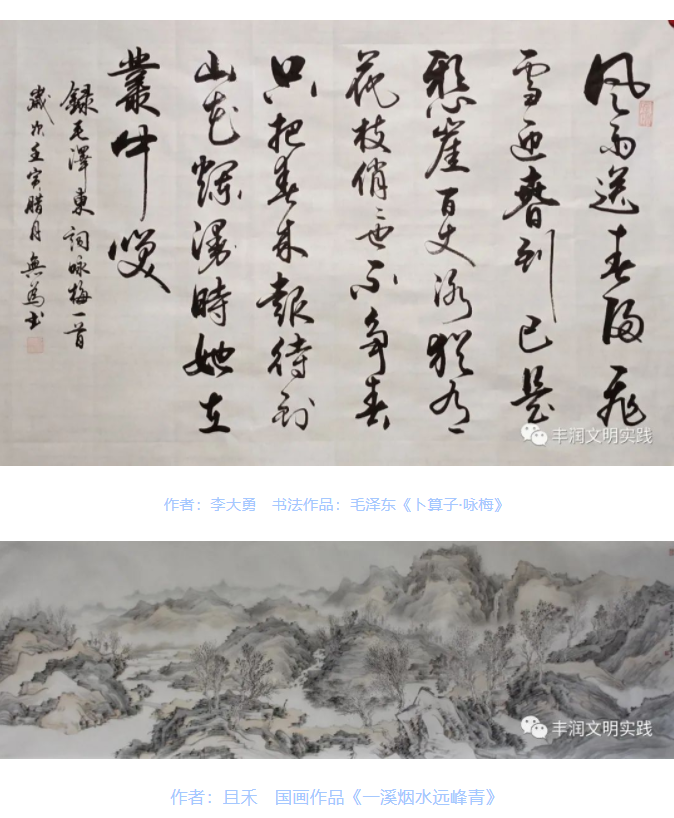 風雨送春歸飛
雪迎春到已是
懸崖百丈冰猶有
花枝俏〻也不争春
只把春來報待到
山花爛漫時她在
叢中咲
録毛澤東詞咏梅一首
歲次壬寅腊月無為书
丰润文明实践
作者：李大勇 书法作品：毛泽东《卜算子·咏梅》
丰润文明实践
作者：且禾 国画作品《一溪烟水远峰青》